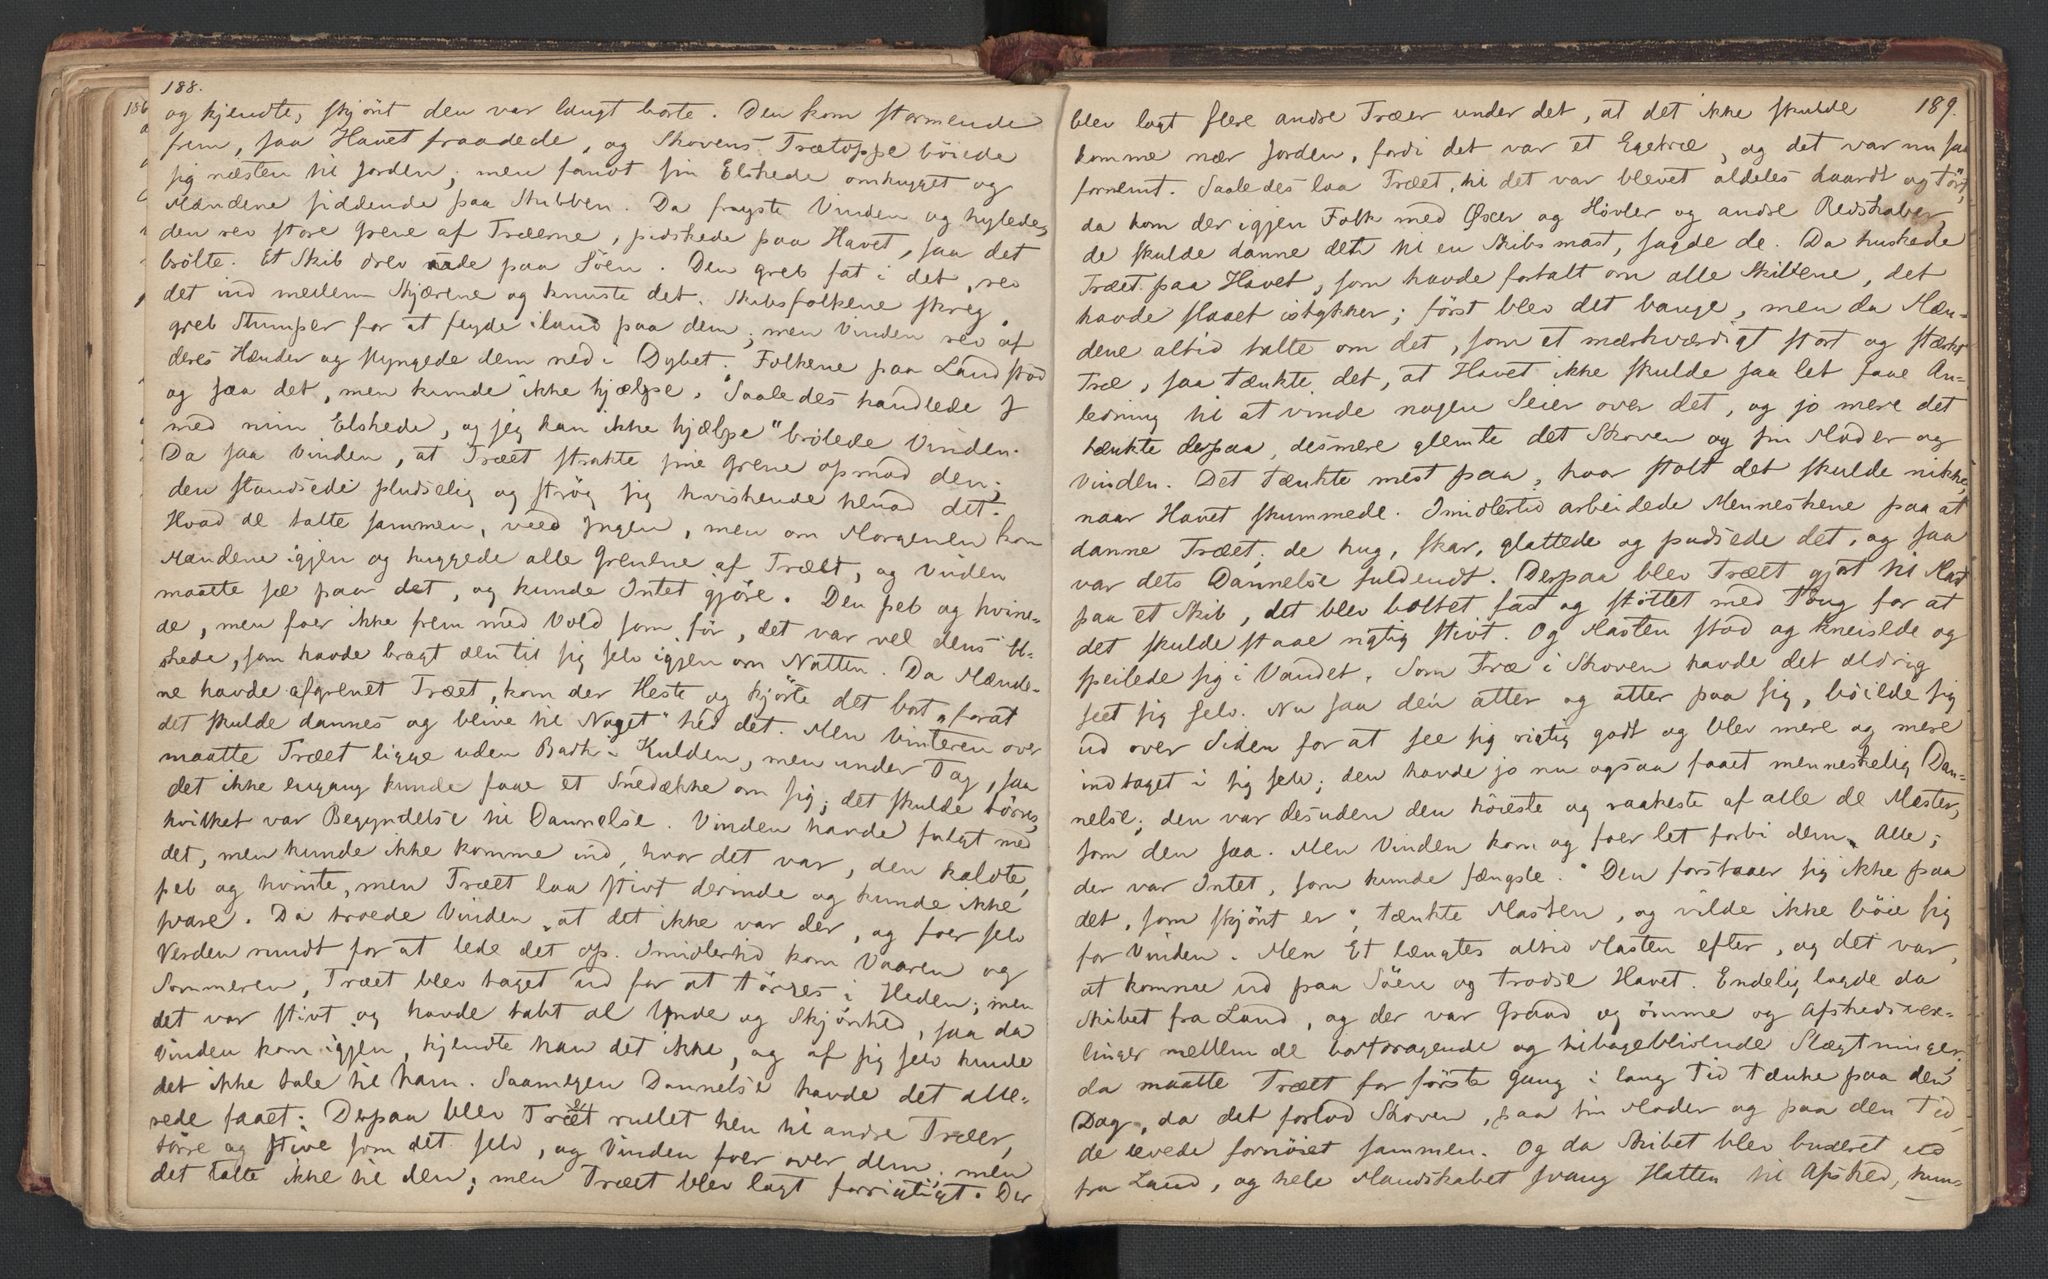 188.
og kjendte, skjönt den var langt borte. Den kom stormende
frem, saa Havet fraadede, og Skovens Trætoppe böiede
sig næsten til Jorden; men fandt sin Elskede omhugget og
Mændene siddende paa Stubben. Da fnyste Vinden og hylede,
den rev store Grene af Træerne, pidskede paa Havet, saa det
brölte. Et Skib drev ude paa Söen. Den greb fat i det, rev
det ind mellem Skjærene og knuste det. Skibsfolkene skreg,
greb Stumper for at flyde iland paa dem; men Vinden rev af
deres Hænder og slyngede dem ned i Dybet. Folkene paa Land stod
og saa det, men kunde ikke hjælpe. "Saaledes handlede I
med min Elskede, og jeg kan ikke hjælpe" brölede Vinden.
Da saa Vinden, at Træet strakte sine Grene opmod den;
den standsede pludselig og strög sig hviskende henad det.
Hvad de talte sammen, veed Ingen, men om Morgenen kom
Mændene igjen og huggede alle Grenene af Træet, og Vinden
maatte see paa det, og kunde Intet gjöre. Den peb og hvine-
de, men foer ikke frem med Vold som för, det var vel dens El-
skede, som havde bragt den til sig selv igjen om Natten. Da Mænde-
ne havde afgrenet Træet, kom der Heste og kjörte det bort, "forat
det skulde dannes og blive til Noget" hed det. Men Vinteren over
maatte Træet ligge uden Bark i Kulden, men under Tag, saa
det ikke engang kunde faae et Snedække om sig; det skulde törres,
hvilket var Begyndelse til Dannelse. Vinden havde fulgt med
det, men kunde ikke komme ind, hvor det var, den kaldte,
peb og hvinte, men Træet laa stivt derinde og kunde ikke
svare. Da troede Vinden, at det ikke var der, og foer selv
Verden rundt for at lede det op. Imidlertid kom Vaaren og
Sommeren, Træet blev taget ud for at törres i Heden; men
det var stivt og havde tabt al Ynde og Skjönhed, saa da
Vinden kom igjen, kjendte han det ikke, og af sig selv kunde
det ikke tale til ham. Saamegen Dannelse havde det alle-
rede faaet. Derpaa blev Træet rullet hen til andre Træer,
törre og stive som det selv, og Vinden foer over dem; men
det talte ikke til den; men Træet blev lagt forsigtigt. Der
189.
blev lagt flere andre Træer under det, at det ikke skulde
komme nær Jorden, fordi det var et Egetræ, og det var nu saa
fornemt. Saaledes laa Træet, til det var blevet aldeles haardt og tört,
da kom der igjen Folk med Öxer og Hövler og andre Redskaber,
de skulde danne det til en Skibsmast, sagde de. Da huskede
Træet paa Havet, som havde fortalt om alle Skibene, det
havde slaaet istykker; först blev det bange, men da Mæn-
dene altid talte om det, som et mærkværdigt stort og stærkt
Træ, saa tænkte det, at Havet ikke skulde saa let faae An-
ledning til at vinde nogen Seier over det, og jo mere det
tænkte derpaa, desmere glemte det Skoven og sin Moder og
Vinden. Det tænkte mest paa, hvor stolt det skulde nikke,
naar Havet skummede. Imidlertid arbeidede Menneskene paa at
danne Træet; de hug, skar, glattede og pudsede det, og saa
var dets Dannelse fuldendt. Derpaa blev Træet gjort til Mast
paa et Skib, det blev boltet fast og stöttet med Toug for at
det skulde staae rigtig stivt. Og Masten stod og kneisede og
speilede sig i Vandet. Som Træ i Skoven havde det aldrig
seet sig selv. Nu saa den atter og atter paa sig, böiede sig
ud over Siden for at see sig rigtig godt og blev mere og mere
indtaget i sig selv; den havde jo nu ogsaa faaet menneskelig Dan-
nelse; den var desuden den höieste og rankeste af alle de Master,
som den saa. Men Vinden kom og foer let forbi dem Alle;
der var Intet, som kunde fængsle. "Den forstaaer sig ikke paa
det, som skjönt er", tænkte Masten, og vilde ikke böie sig
for Vinden. Men Et længtes altid Masten efter, og det var,
at komme ud paa Söen og trodse Havet. Endelig lagde da
Skibet fra Land, og der var Graad og ömme og Afskedsvex-
linger mellem de bortdragende og tilbageblivende Slægtninger,
da maatte Træet for förste Gang i lang Tid tænke paa den
Dag, da det forlod Skoven, paa sin Moder og paa den Tid,
de levede fornöiet sammen. Og da Skibet blev buxeret ud
fra Land, og hele Mandskabet svang Hatten til Afsked, kun-